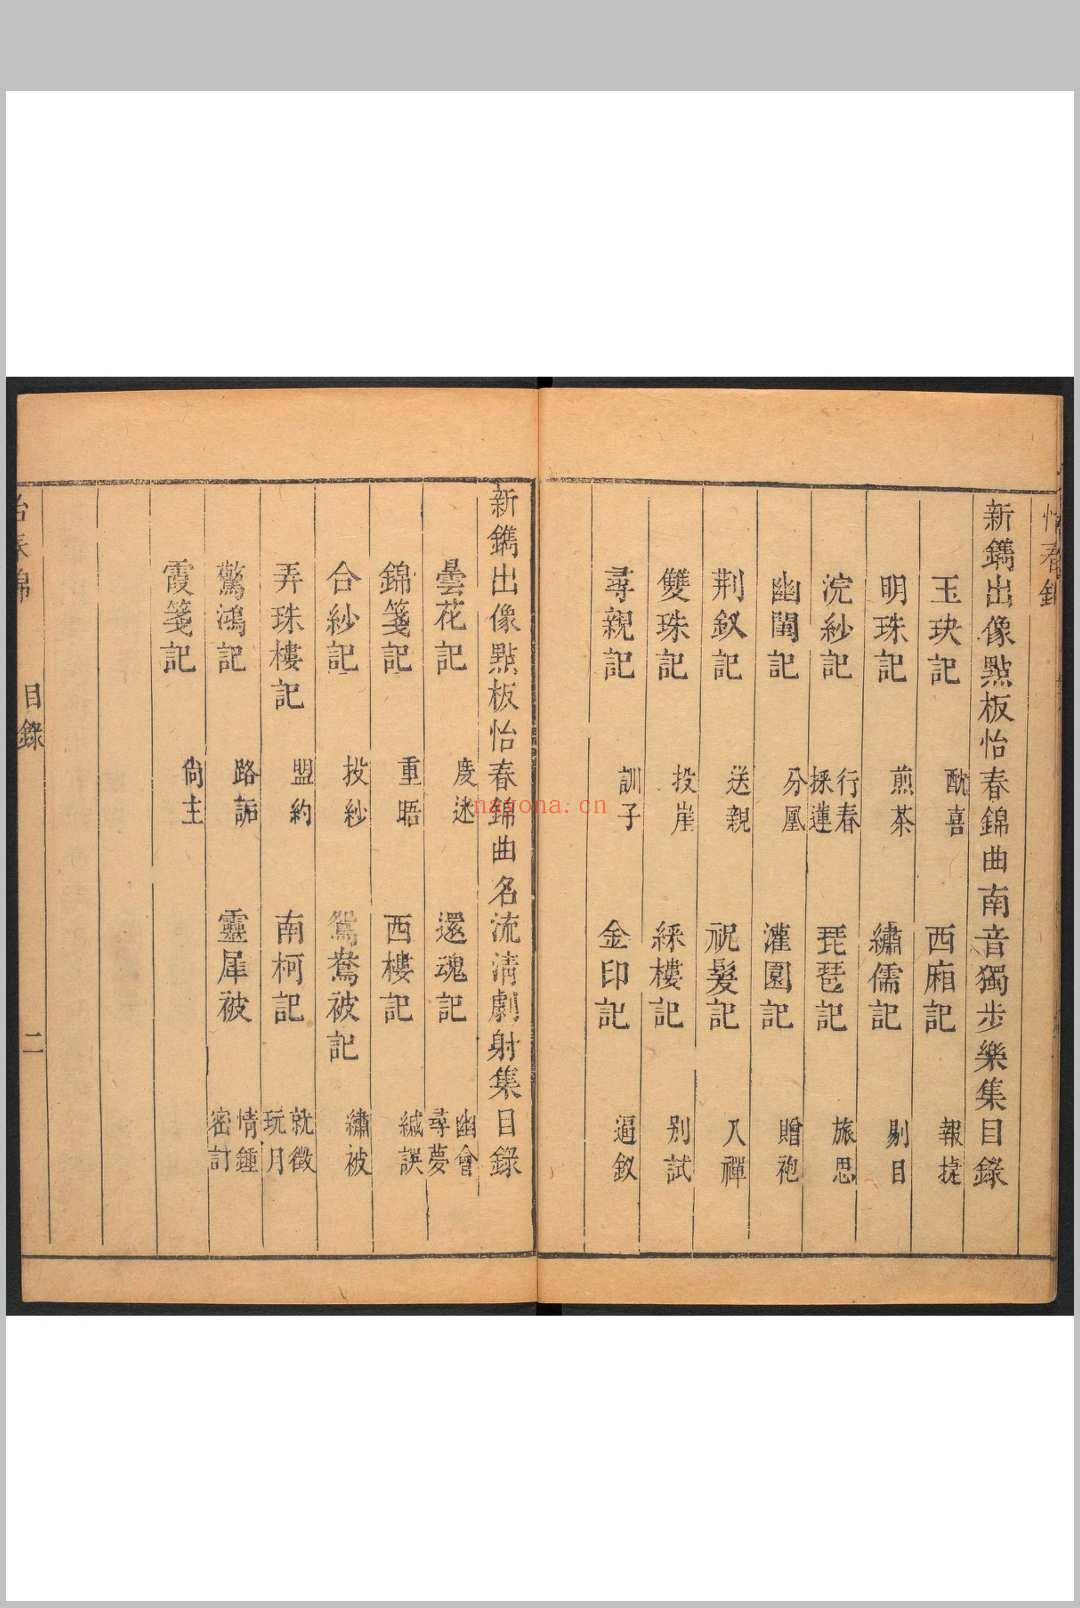 新鐫出像點板怡春錦曲南音獨步樂集目錄
玉玦記 酖喜 西廂記 報捷
明珠記 煎茶 繡襦記 剔目
浣紗記 行春 採蓮 琵琶記 旅思
幽閨記 分凰 灌園記 贈袍
荆釵記 送親 祝髮記 入禪
雙珠記 投崖 綵樓記 別試
尋親記 訓子 金印記 逼釵
新鐫出像點板怡春錦曲名流清劇射集目錄
曇花記 度迷 還魂記 幽會 尋夢
錦箋記 重晤 西樓記 緘誤
合紗記 投紗 鴛鴦被記 繡被
弄珠樓記 盟約 南柯記 就徵 玩月
驚鴻記 路詬 靈犀被 情鍾 密訂
霞箋記 尚主
怡春錦 目錄 二
nayona.cn